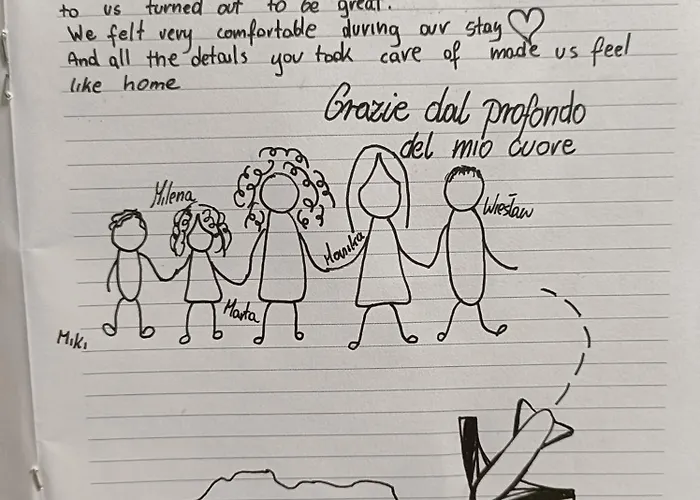 to us turned out to be great.
We felt very comfortable during our stay
And all the details you took care of made us feel
like home
Grazie dal profondo
del mio cuore
Milena
Wiesław
Monika
Marta
Miki